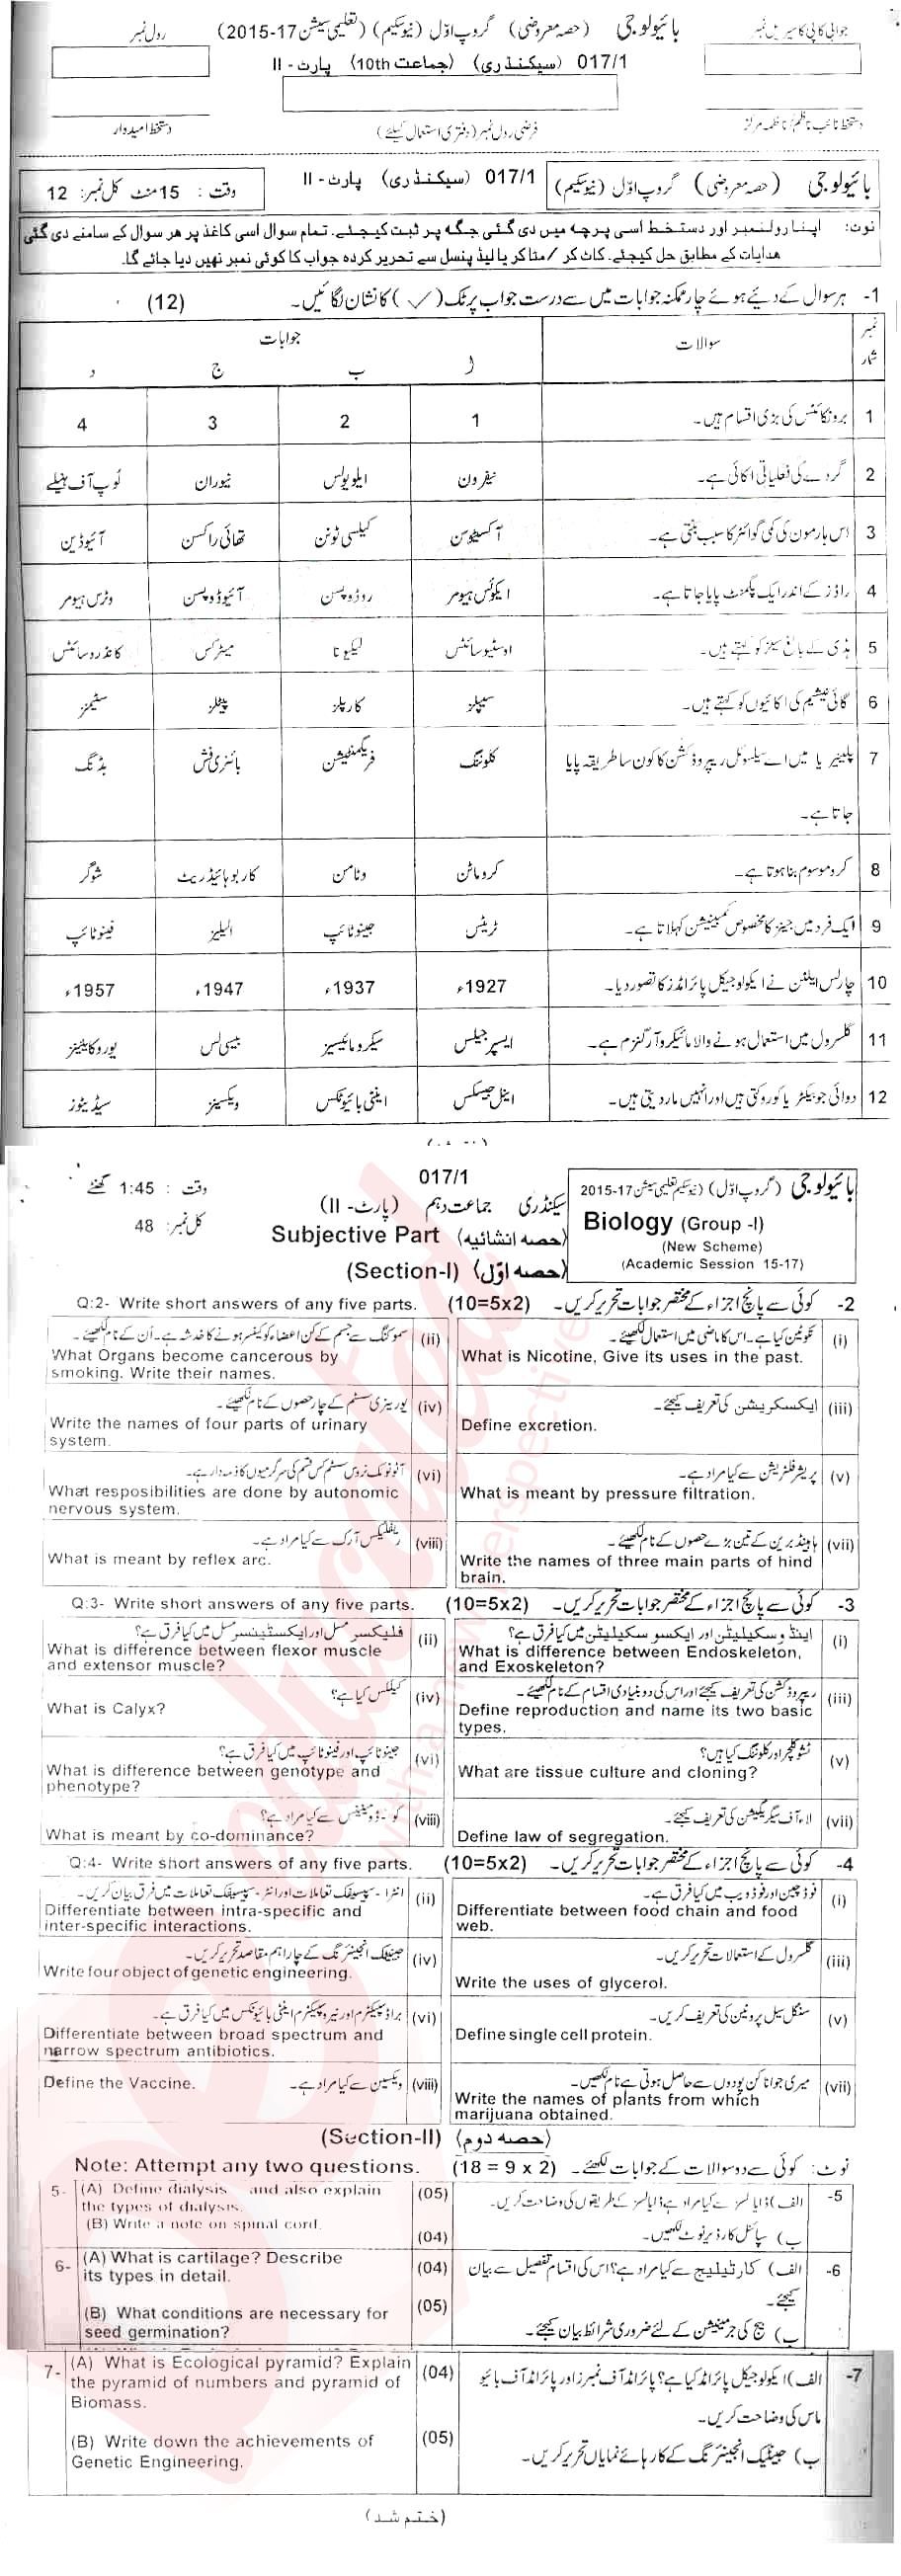 جوابی کاپی کا سیریل نمبر بائیولوجی (حصہ معروضی) گروپ اوّل (نیو سکیم) (تعلیمی سیشن 17-2015) رول نمبر
017/1 (سیکنڈری) (جماعت 10th) پارٹ - II
دستخط نائب ناظم/ناظمہ مرکز فرضی رول نمبر (دفتری استعمال کیلئے) دستخط امیدوار
بائیولوجی (حصہ معروضی) گروپ اوّل (نیو سکیم) 017/1 (سیکنڈری) پارٹ - II وقت : 15 منٹ کل نمبر: 12
نوٹ: اپنا رولنمبر اور دستخط اسی پرچہ میں دی گئی جگہ پر ثبت کیجئے۔ تمام سوال اسی کاغذ پر ہر سوال کے سامنے دی گئی
ہدایات کے مطابق حل کیجئے۔ کاٹ کر /مٹا کر یا لیڈ پنسل سے تحریر کردہ جواب کا کوئی نمبر نہیں دیا جائے گا۔
1- ہر سوال کے دیئے ہوئے چار ممکنہ جوابات میں سے درست جواب پر ٹک (✓) کا نشان لگائیں۔ (12)
نمبر شمار سوالات جوابات
ا ب ج د
1 برونکائٹس کی بڑی اقسام ہیں۔ 1 2 3 4
2 گردے کی فعلیاتی اکائی ہے۔ نیفرون ایلویولس نیوران لُوپ آف ہینلے
3 اس ہارمون کی کمی گوائٹر کا سبب بنتی ہے۔ آکسیٹوسن کیلسی ٹونن تھائی راکسن آئیوڈین
4 راڈز کے اندر ایک پگمنٹ پایا جاتا ہے۔ ایکوئس ہیومر روڈوپسن آئیوڈوپسن وٹرس ہیومر
5 ہڈی کے بالغ سیلز کو کہتے ہیں۔ اوسٹیوسائٹس لیکیونا میٹرکس کانڈروسائٹس
6 گائی نیشیم کی اکائیوں کو کہتے ہیں۔ سیپلز کارپلز پیٹلز سٹیمنز
7 پلینیریا میں اے سیکسوئل ریپروڈکشن کا کون سا طریقہ پایا کلوننگ فریگمنٹیشن بائنری فشن بڈنگ
جاتا ہے۔
8 کروموسوم بنا ہوتا ہے۔ کروماٹن وٹامن کاربوہائیڈریٹ شوگر
9 ایک فرد میں جینز کا مخصوص کمبینیشن کہلاتا ہے۔ ٹریٹس جینوٹائپ الیلیز فینوٹائپ
10 چارلس ایلٹن نے ایکولوجیکل پائرامڈز کا تصور دیا۔ 1927ء 1937ء 1947ء 1957ء
11 گلسرول میں استعمال ہونے والا مائیکروآرگنزم ہے۔ ایسپرجیلس سیکرومائیسیز بیسی لس یوروکائینیز
12 دوائی جو بیکٹیریا کو روکتی ہیں اور انہیں مار دیتی ہیں۔ اینل جیسکس اینٹی بائیوٹکس ویکسینز سیڈیٹوز
بائیولوجی (گروپ اوّل) (نیو سکیم تعلیمی سیشن 17-2015) 017/1 وقت : 1:45 گھنٹے
سیکنڈری جماعت دہم (پارٹ - II) کل نمبر: 48
Biology (Group -I)
Subjective Part (حصہ انشائیہ)
(New Scheme)
(Academic Session 15-17)
(Section-I) (حصہ اوّل)
Q:2- Write short answers of any five parts. (10=5x2) کوئی سے پانچ اجزاء کے مختصر جوابات تحریر کریں۔ 2-
(i) نکوٹین کیا ہے۔ اس کا ماضی میں استعمال لکھیئے۔
What is Nicotine, Give its uses in the past.
(ii) سموکنگ سے جسم کے کن اعضاء کو کینسر ہونے کا خدشہ ہے۔ اُن کے نام لکھیئے۔
What Organs become cancerous by
smoking. Write their names.
(iii) ایکسکریشن کی تعریف کیجئے۔
Define excretion.
(iv) یورینری سسٹم کے چار حصوں کے نام لکھیئے۔
Write the names of four parts of urinary
system.
(v) پریشر فلٹریشن سے کیا مراد ہے۔
What is meant by pressure filtration.
(vi) آٹونومک نروس سسٹم کس قسم کی سرگرمیوں کا ذمہ دار ہے۔
What resposibilities are done by autonomic
nervous system.
(vii) ہائنڈ برین کے تین بڑے حصوں کے نام لکھیئے۔
Write the names of three main parts of hind
brain.
(viii) ریفلیکس آرک سے کیا مراد ہے۔
What is meant by reflex arc.
Q:3- Write short answers of any five parts. (10=5x2) کوئی سے پانچ اجزاء کے مختصر جوابات تحریر کریں۔ 3-
(i) اینڈوسکیلیٹن اور ایکسوسکیلیٹن میں کیا فرق ہے؟
What is difference between Endoskeleton,
and Exoskeleton?
(ii) فلیکسر مسل اور ایکسٹینسر مسل میں کیا فرق ہے؟
What is difference between flexor muscle
and extensor muscle?
(iii) ریپروڈکشن کی تعریف کیجئے اور اس کی دو بنیادی اقسام کے نام لکھیئے۔
Define reproduction and name its two basic
types.
(iv) کیلکس کیا ہے؟
What is Calyx?
(v) ٹشو کلچر اور کلوننگ کیا ہیں؟
What are tissue culture and cloning?
(vi) جینوٹائپ اور فینوٹائپ میں کیا فرق ہے؟
What is difference between genotype and
phenotype?
(vii) لاء آف سیگریگیشن کی تعریف کیجئے۔
Define law of segregation.
(viii) کو - ڈومینینس سے کیا مراد ہے؟
What is meant by co-dominance?
Q:4- Write short answers of any five parts. (10=5x2) کوئی سے پانچ اجزاء کے مختصر جوابات تحریر کریں۔ 4-
(i) فوڈ چین اور فوڈ ویب میں کیا فرق ہے۔
Differentiate between food chain and food
web.
(ii) انٹرا - سپیسیفک تعاملات اور انٹر - سپیسیفک تعاملات میں فرق بیان کریں۔
Differentiate between intra-specific and
inter-specific interactions.
(iii) گلسرول کے استعمالات تحریر کریں۔
Write the uses of glycerol.
(iv) جینیٹک انجینئرنگ کے چار اہم مقاصد تحریر کریں۔
Write four object of genetic engineering.
(v) سنگل سیل پروٹین کی تعریف کریں۔
Define single cell protein.
(vi) براڈ سپیکٹرم اور نیرو سپیکٹرم اینٹی بائیوٹکس میں کیا فرق ہے۔
Differentiate between broad spectrum and
narrow spectrum antibiotics.
(vii) میری جوانا کن پودوں سے حاصل ہوتی ہے نام لکھیں۔
Write the names of plants from which
marijuana obtained.
(viii) ویکسین سے کیا مراد ہے۔
Define the Vaccine.
(Section-II) (حصہ دوم)
Note: Attempt any two questions. (18 = 9 x 2) نوٹ: کوئی سے دو سوالات کے جوابات لکھیئے۔
5- (A) Define dialysis and also explain
the types of dialysis. (05)
(B) Write a note on spinal cord. (04)
5- الف) ڈایالسز سے کیا مراد ہے ڈایالسز کے طریقوں کی وضاحت کریں۔
ب) سپائنل کارڈ پر نوٹ لکھیں۔
6- (A) What is cartilage? Describe
its types in detail. (04)
(B) What conditions are necessary for
seed germination? (05)
6- الف) کارٹیلیج سے کیا مراد ہے؟ اس کی اقسام تفصیل سے بیان
کیجئے۔
ب) بیج کی جرمینیشن کے لئے ضروری شرائط بیان کیجئے۔
7- (A) What is Ecological pyramid? Explain
the pyramid of numbers and pyramid of
Biomass. (04)
(B) Write down the achievements of
Genetic Engineering. (05)
7- الف) ایکولوجیکل پائرامڈ کیا ہے؟ پائرامڈ آف نمبرز اور پائرامڈ آف بائیو
ماس کی وضاحت کریں۔
ب) جینیٹک انجینئرنگ کے کارہائے نمایاں تحریر کریں۔
(ختم شد)